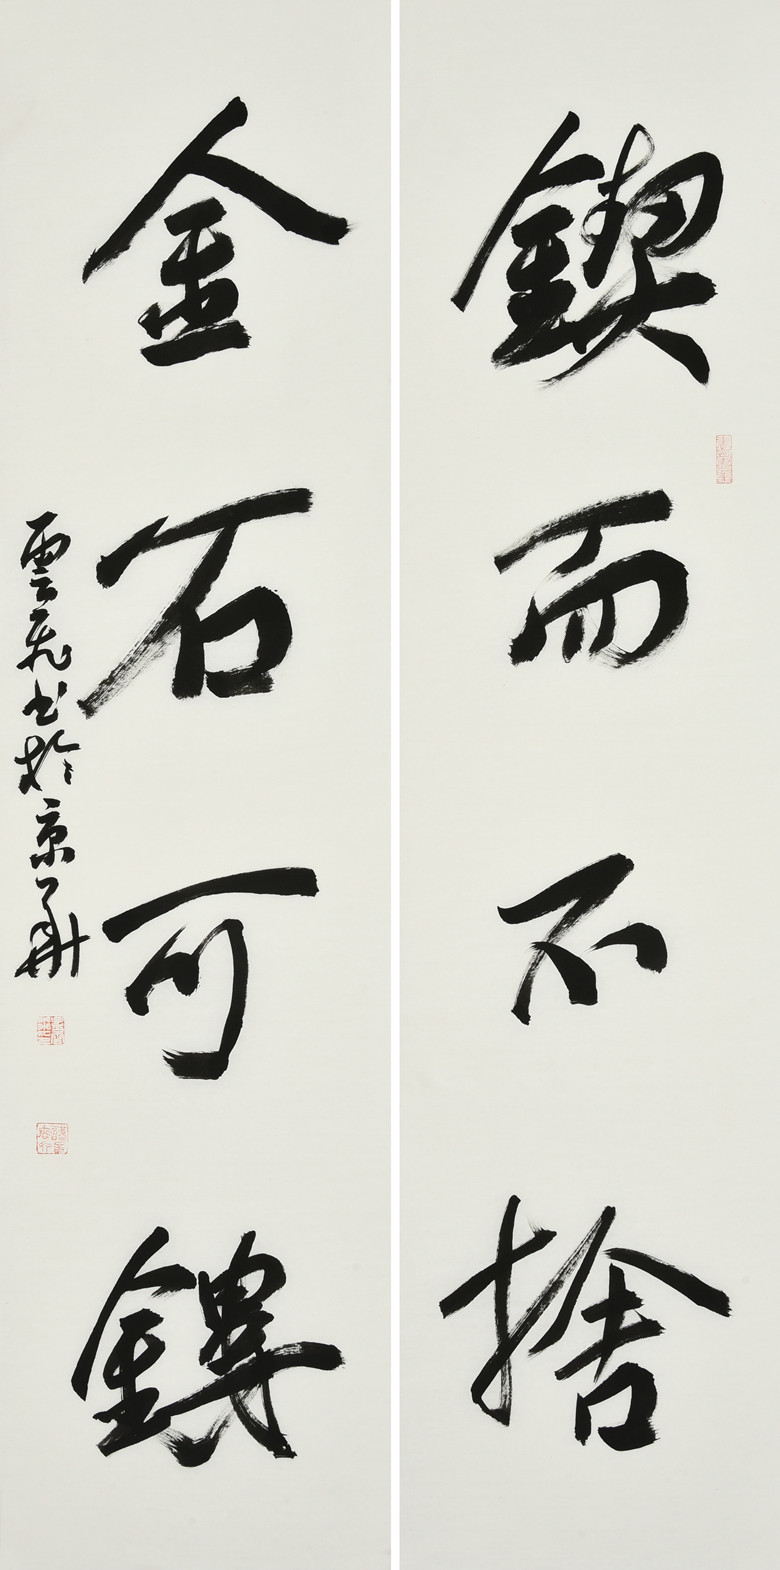 鍥而不捨
金石可鏤
雲飛書於京華